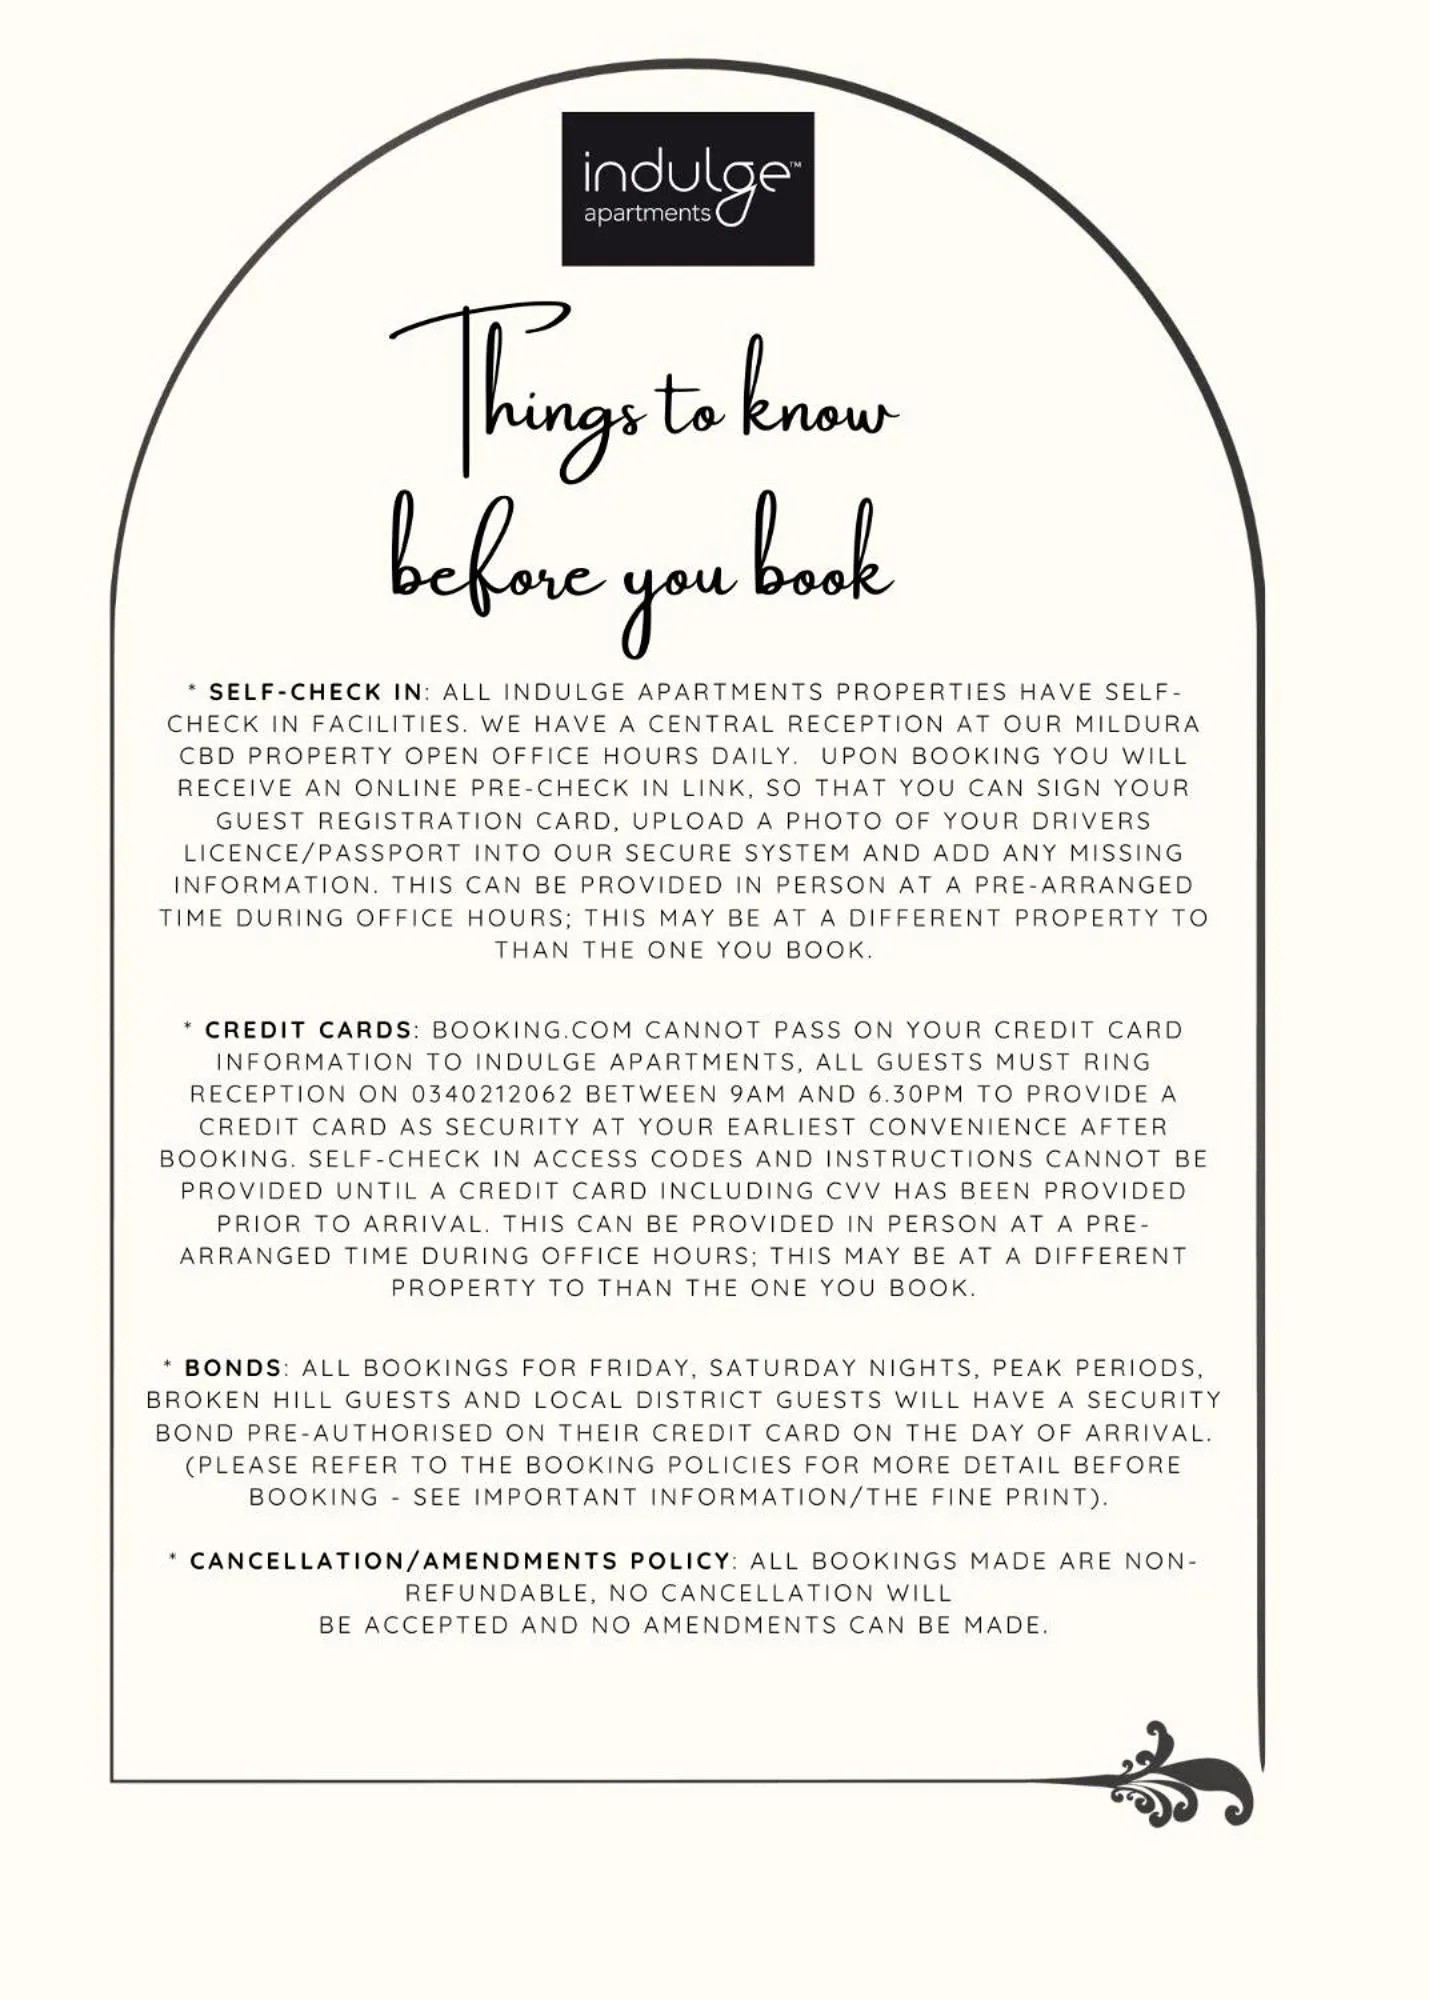 indulge™
apartments
Things to know
before you book
* SELF-CHECK IN: ALL INDULGE APARTMENTS PROPERTIES HAVE SELF-
CHECK IN FACILITIES. WE HAVE A CENTRAL RECEPTION AT OUR MILDURA
CBD PROPERTY OPEN OFFICE HOURS DAILY. UPON BOOKING YOU WILL
RECEIVE AN ONLINE PRE-CHECK IN LINK, SO THAT YOU CAN SIGN YOUR
GUEST REGISTRATION CARD, UPLOAD A PHOTO OF YOUR DRIVERS
LICENCE/PASSPORT INTO OUR SECURE SYSTEM AND ADD ANY MISSING
INFORMATION. THIS CAN BE PROVIDED IN PERSON AT A PRE-ARRANGED
TIME DURING OFFICE HOURS; THIS MAY BE AT A DIFFERENT PROPERTY TO
THAN THE ONE YOU BOOK.
* CREDIT CARDS: BOOKING.COM CANNOT PASS ON YOUR CREDIT CARD
INFORMATION TO INDULGE APARTMENTS, ALL GUESTS MUST RING
RECEPTION ON 0340212062 BETWEEN 9AM AND 6.30PM TO PROVIDE A
CREDIT CARD AS SECURITY AT YOUR EARLIEST CONVENIENCE AFTER
BOOKING. SELF-CHECK IN ACCESS CODES AND INSTRUCTIONS CANNOT BE
PROVIDED UNTIL A CREDIT CARD INCLUDING CVV HAS BEEN PROVIDED
PRIOR TO ARRIVAL. THIS CAN BE PROVIDED IN PERSON AT A PRE-
ARRANGED TIME DURING OFFICE HOURS; THIS MAY BE AT A DIFFERENT
PROPERTY TO THAN THE ONE YOU BOOK.
* BONDS: ALL BOOKINGS FOR FRIDAY, SATURDAY NIGHTS, PEAK PERIODS,
BROKEN HILL GUESTS AND LOCAL DISTRICT GUESTS WILL HAVE A SECURITY
BOND PRE-AUTHORISED ON THEIR CREDIT CARD ON THE DAY OF ARRIVAL.
(PLEASE REFER TO THE BOOKING POLICIES FOR MORE DETAIL BEFORE
BOOKING - SEE IMPORTANT INFORMATION/THE FINE PRINT).
* CANCELLATION/AMENDMENTS POLICY: ALL BOOKINGS MADE ARE NON-
REFUNDABLE, NO CANCELLATION WILL
BE ACCEPTED AND NO AMENDMENTS CAN BE MADE.